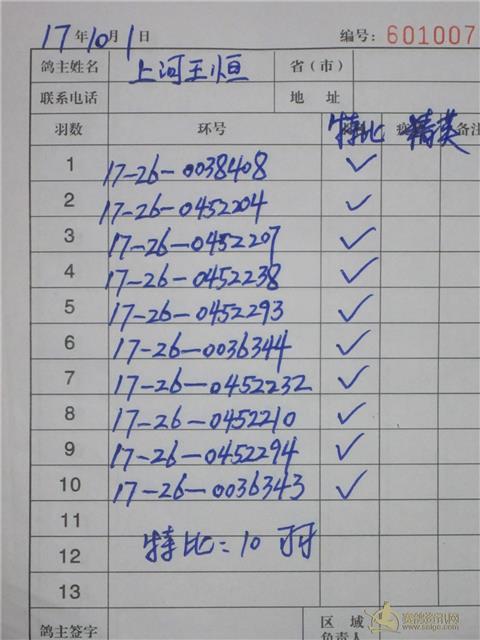 17年10月1日 编号: 601007
鸽主姓名 上河王恒 省(市)
联系电话 地 址
羽数 环号 特比 精英 备注
1 17-26-0038408 ✓
2 17-26-0452204 ✓
3 17-26-0452207 ✓
4 17-26-0452238 ✓
5 17-26-0452293 ✓
6 17-26-0036344 ✓
7 17-26-0452232 ✓
8 17-26-0452210 ✓
9 17-26-0452294 ✓
10 17-26-0036343 ✓
11
12 特比:10羽
13
鸽主签字 区 域
负责人
赛鸽资讯网
www.saige.com